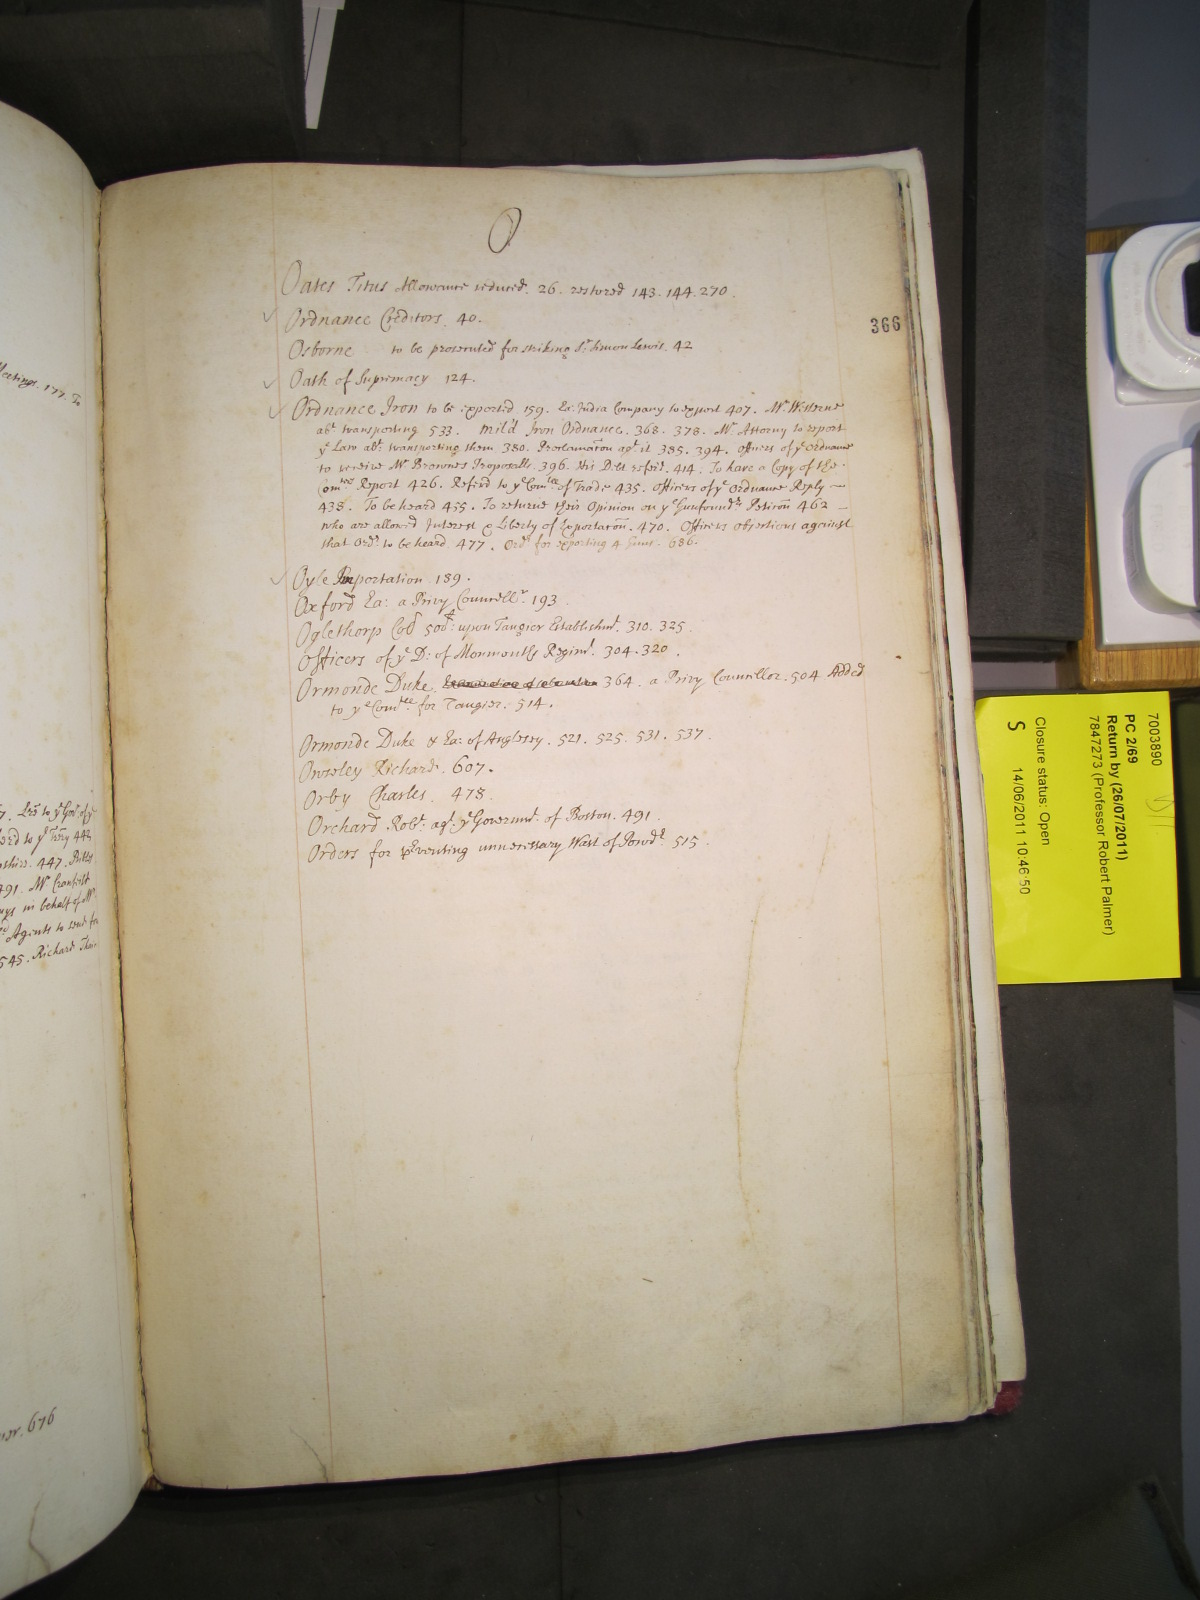 O
Oates Titus Allowance reduced. 26. restored 143. 144. 270.
Ordnance Creditors. 40.
Osborne to be prosecuted for striking Sr. Simon Lewis. 42
Oath of Supremacy 124.
Ordnance Iron to be exported 159. Ea: India Company to export 407. Mr.
abt. transporting 533. Iron Ordnance. 368. 378. Mr. Attorny to report
ye Law abt. transporting them 380. Proclamac̃on agt. it 385. 394. Officers of ye Ordnance
to receive Mr. Brownes Proposalls. 396. His Debt refer'd. 414. To have a Copy of the
Comrs Report 426. Refer'd to ye Comtee of Trade 435. Officers of ye Ordnance Reply —
438. To be heard 455. To returne their Opinion on ye Gunfounders Petic̃on 462 —
who are allowed Interest & Liberty of Exportac̃on. 470. Officers objections against
that Ordr. to be heard. 477. Ordr. for exporting 4 Guns. 686.
Oyle Importation 189.
Oxford Ea: a Privy Councellr. 193
Oglethorp upon Tangier Establishmt. 310. 325.
Officers of ye D: of Monmouths Regimt. 304. 320.
Ormonde Duke. 364. a Privy Councellor. 504 Added
to ye Comtee for Tangier. 514.
Ormonde Duke & Ea: of Anglesey. 521. 525. 531. 537.
Owseley Richard. 607.
Orby Charles 478.
Orchard Robt. agt. ye Governmt. of Boston. 491.
Orders for preventing unnecessary Wast of Powdr. 515.
366
Meetings. 177. To
447.
491. Mr.
in behalf of Mr.
Agents to send for
545. Richard
676
7003890
PC 2/69
Return by (26/07/2011)
7847273 (Professor Robert Palmer)
Closure status: Open
S 14/06/2011 10:46:50